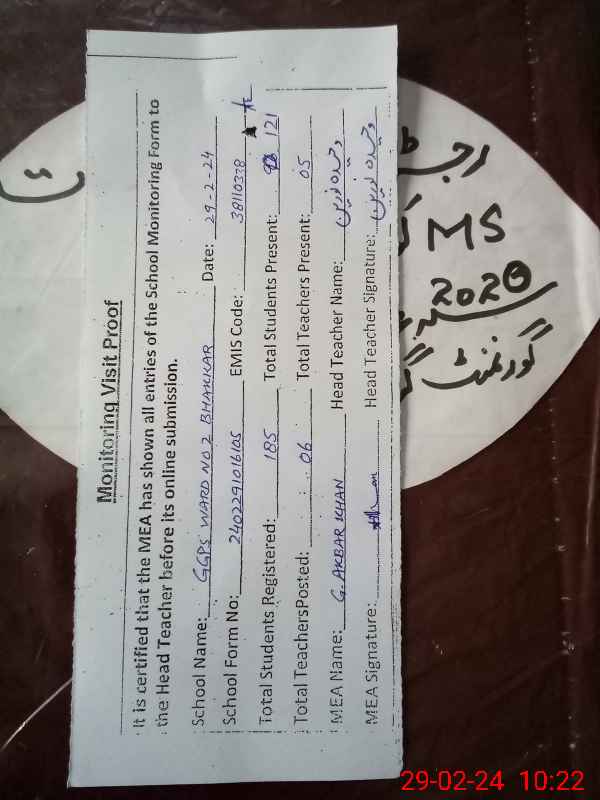 Monitoring Visit Proof
It is certified that the MEA has shown all entries of the School Monitoring Form to
the Head Teacher before its online submission.
School Name: GGPS WARD NO 2 BHAKKAR Date: 29-2-24
School Form No: 2402291016105 EMIS Code: 38110378
Total Students Registered: 185 Total Students Present: 121
Total TeachersPosted: 06 Total Teachers Present: 05
MEA Name: G. AKBAR KHAN Head Teacher Name: وحیدہ نورین
MEA Signature: Head Teacher Signature: وحیدہ نورین
MS
2020
گورنمنٹ
29-02-24 10:22